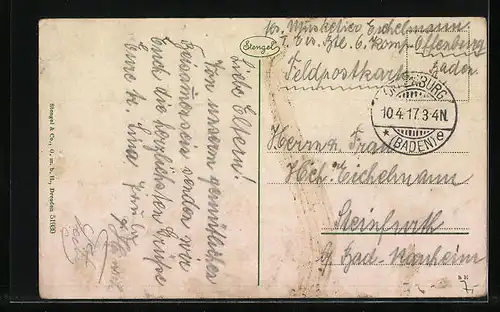 Abs. Musketier Eichelmann
I. Ers. Btl. 6. Komp. Offenburg
Baden
Feldpostkarte
OFFENBURG
10.4.17.3-4N.
* (BADEN) e
Stengel
Liebe Eltern!
Von unserm gemütlichen
Zusammensein senden wir
Euch die herzlichsten Grüße
Eure l. Lina
Herrn u. Frau
Hch. Eichelmann
Steinfurth
b/ Bad-Nauheim
Stengel & Co., G. m. b. H., Dresden